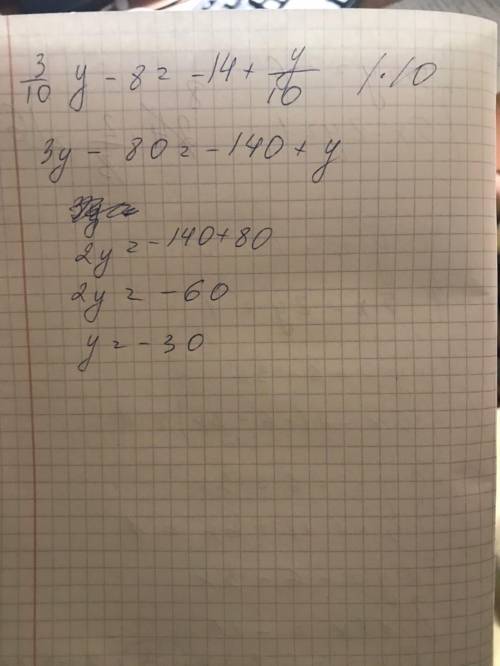 3/10 y - 8 = -14 + y/10 /·10
3y - 80 = -140 + y
2y = -140 + 80
2y = -60
y = -30